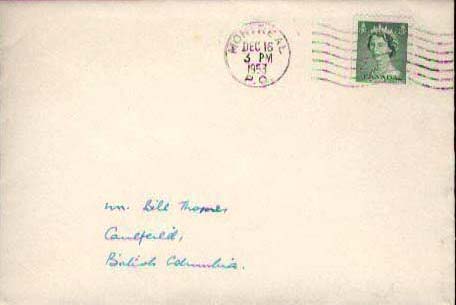 MONTREAL
DEC 16
3 PM
1953
P.Q.
CANADA
Mr. Bill Thomas
Caulfeild,
British Columbia.